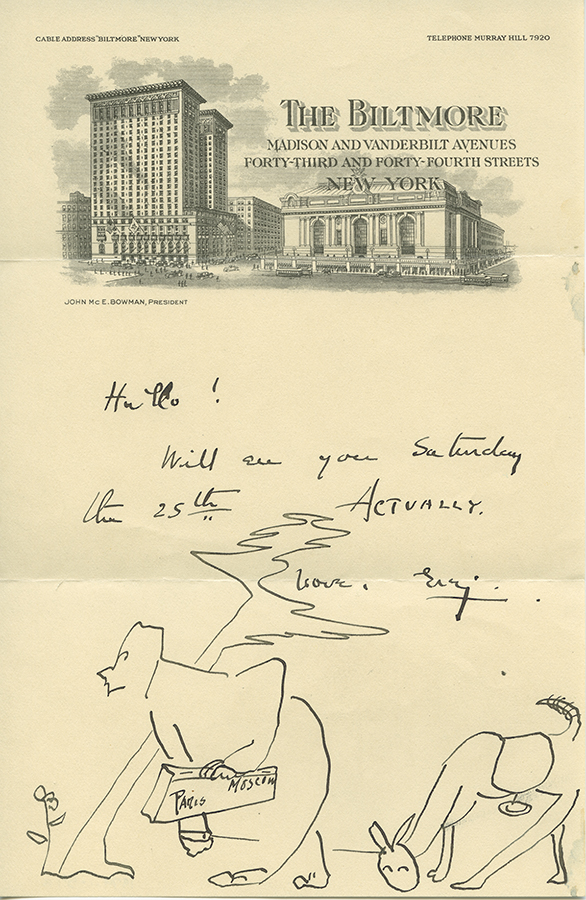 CABLE ADDRESS "BILTMORE" NEW YORK
TELEPHONE MURRAY HILL 7920
THE BILTMORE
MADISON AND VANDERBILT AVENUES
FORTY-THIRD AND FORTY-FOURTH STREETS
NEW YORK
JOHN MC E. BOWMAN, PRESIDENT
Hullo!
Will see you Saturday
the 25th ACTUALLY.
Love.
PARIS
MOSCOW